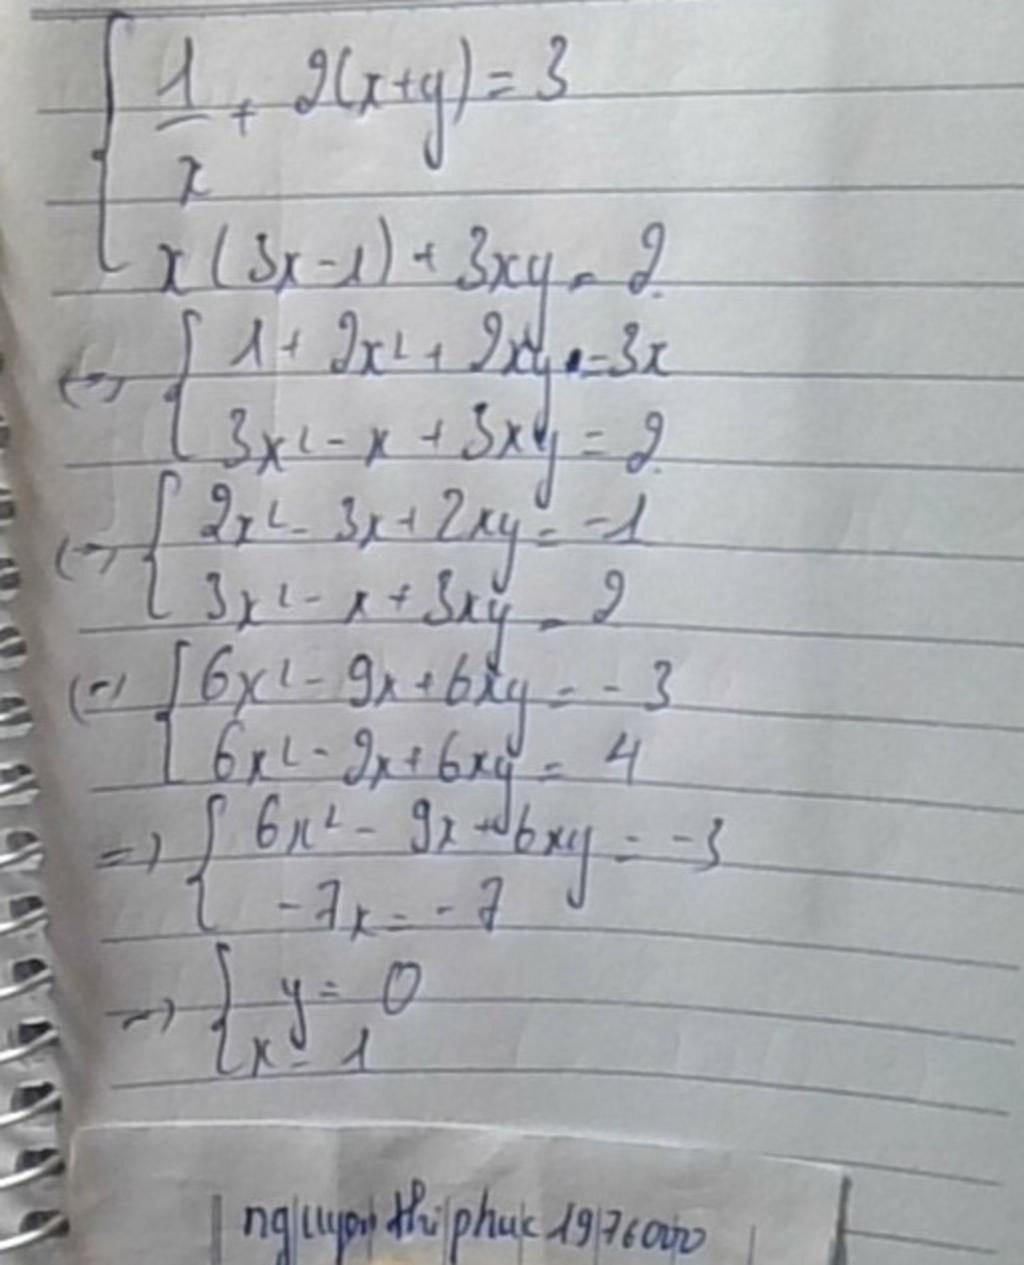 1/x + 2(x+y) = 3
x(3x-1) + 3xy = 2
(=) 1 + 2x² + 2xy = 3x
3x² - x + 3xy = 2
(=) 2x² - 3x + 2xy = -1
3x² - x + 3xy = 2
(=) 6x² - 9x + 6xy = -3
6x² - 2x + 6xy = 4
=) 6x² - 9x + 6xy = -3
-7x = -7
=) y = 0
x = 1
nguyen thi phuc 1976000